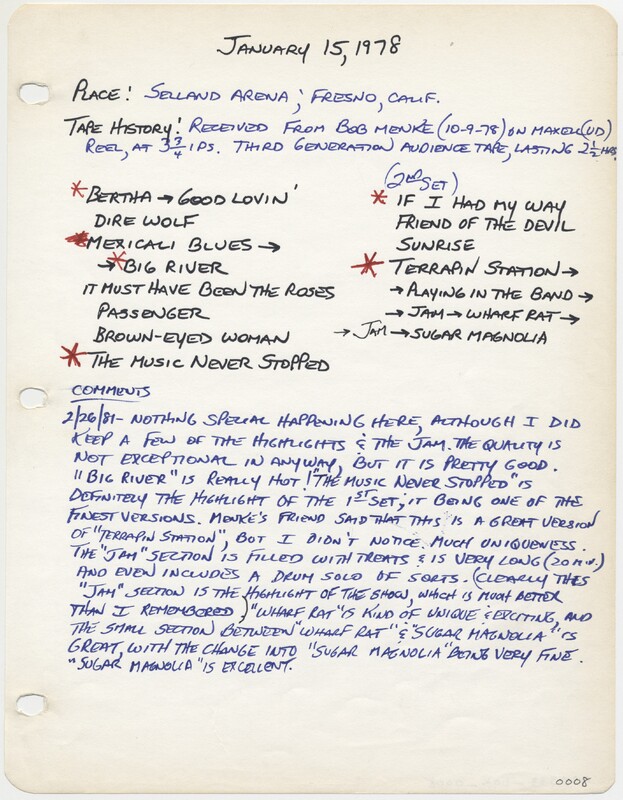 JANUARY 15, 1978
PLACE: SELLAND ARENA; FRESNO, CALIF.
TAPE HISTORY: RECEIVED FROM BOB MENKE (10-9-78) ON MAXELL (UD)
REEL, AT 3 3/4 IPS. THIRD GENERATION AUDIENCE TAPE, LASTING 2 1/2 HRS.
* BERTHA → GOOD LOVIN'
DIRE WOLF
* MEXICALI BLUES →
→ * BIG RIVER
IT MUST HAVE BEEN THE ROSES
PASSENGER
BROWN-EYED WOMAN
* THE MUSIC NEVER STOPPED
(2ND SET)
* IF I HAD MY WAY
FRIEND OF THE DEVIL
SUNRISE
* TERRAPIN STATION →
→ PLAYING IN THE BAND →
→ JAM → WHARF RAT →
→ JAM → SUGAR MAGNOLIA
COMMENTS
2/26/81- NOTHING SPECIAL HAPPENING HERE, ALTHOUGH I DID
KEEP A FEW OF THE HIGHLIGHTS & THE JAM. THE QUALITY IS
NOT EXCEPTIONAL IN ANYWAY, BUT IT IS PRETTY GOOD.
"BIG RIVER" IS REALLY HOT! "THE MUSIC NEVER STOPPED" IS
DEFINITELY THE HIGHLIGHT OF THE 1ST SET, IT BEING ONE OF THE
FINEST VERSIONS. MENKE'S FRIEND SAID THAT THIS IS A GREAT VERSION
OF "TERRAPIN STATION", BUT I DIDN'T NOTICE MUCH UNIQUENESS.
THE "JAM" SECTION IS FILLED WITH TREATS & IS VERY LONG (20 MIN.)
AND EVEN INCLUDES A DRUM SOLO OF SORTS. (CLEARLY THIS
"JAM" SECTION IS THE HIGHLIGHT OF THE SHOW, WHICH IS MUCH BETTER
THAN I REMEMBERED.) "WHARF RAT" IS KIND OF UNIQUE & EXCITING, AND
THE SMALL SECTION BETWEEN "WHARF RAT" & "SUGAR MAGNOLIA" IS
GREAT, WITH THE CHANGE INTO "SUGAR MAGNOLIA" BEING VERY FINE.
"SUGAR MAGNOLIA" IS EXCELLENT.
0008